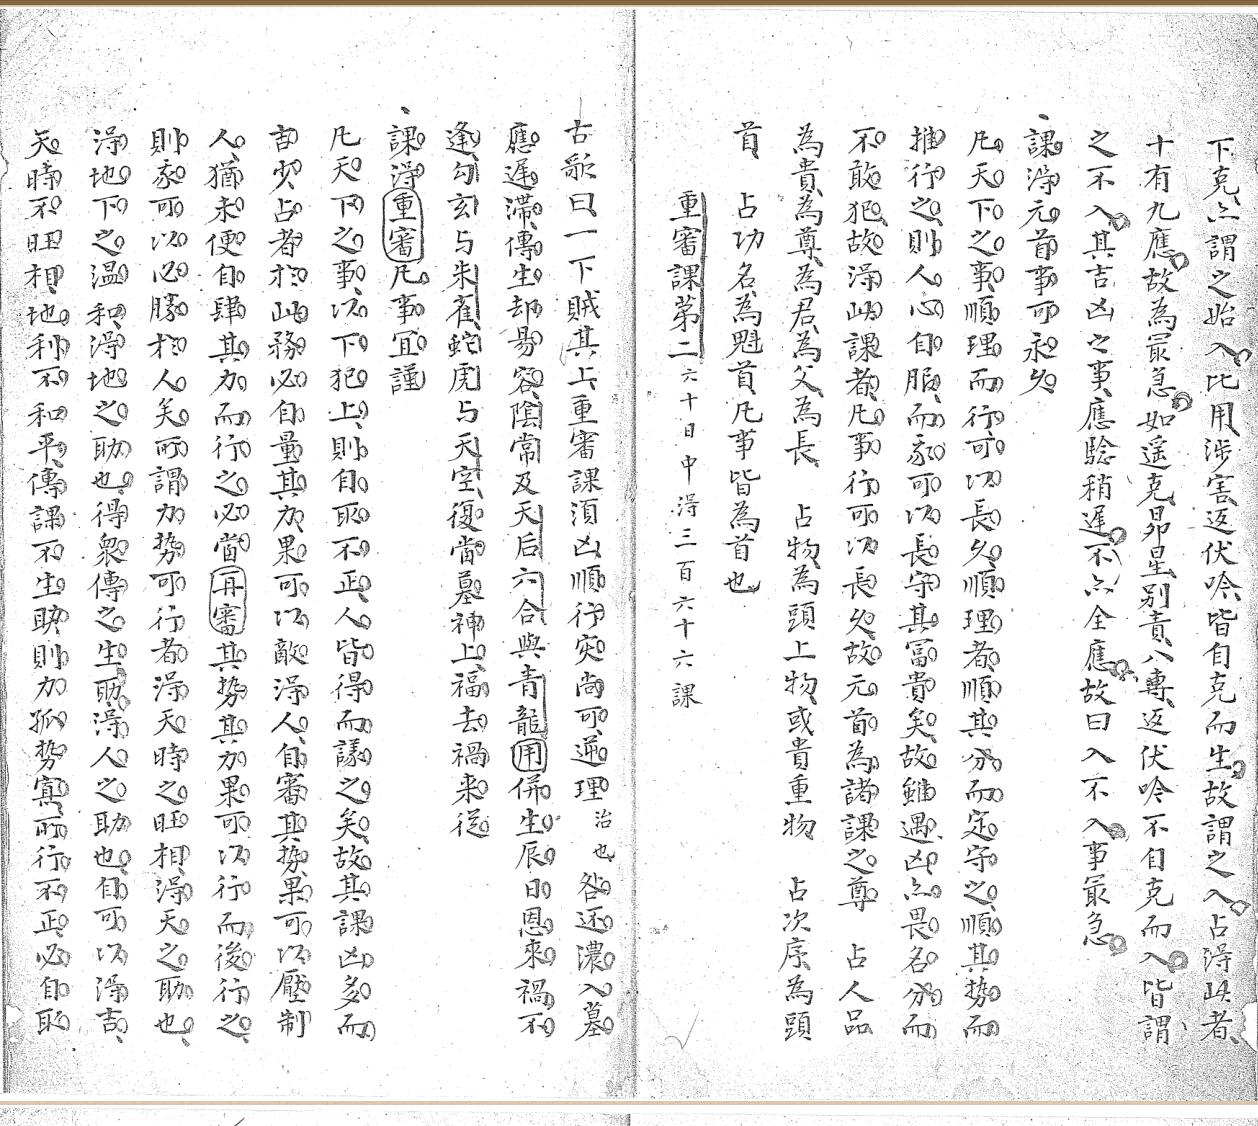 下克亦謂之始入比用涉害返伏吟皆自克而生故謂之入占淂此者
十有九應故為冣急如遥克昴星别責八專返伏吟不自克而入皆謂
之不入其吉凶之事應驗稍遅不亦全應故曰入不入事冣急
課淂元首事可永久
凡天下之事順理而行可以長久順理者順其分而定守之順其势而
推行之則人心自服而家可以長守其冨貴矣故雖遇凶亦畏名分而
不敢犯故淂此課者凡事行可以長久故元首為諸課之尊 占人品
為貴為尊為君為父為長 占物為頭上物或貴重物 占次序為頭
首 占功名為魁首凡事皆為首也
重審課第二六十日中淂三百六十六課
古歌曰一下賊其上重審課湏凶順行灾尚可逆理治也咎还濃入墓
應遅滯傳生却昜容陰常及天后六合與青龍用併生辰日恩來禍不
逢勾玄与朱雀蛇虎与天空復當墓神上福去禍来從
課淂重審凡事宜謹
凡天下之事以下犯上則自取不正人皆得而議之矣故其課凶多而
吉少占者於此務必自量其力果可以敵淂人自審其势果可以壓制
人猶未便自肆其力而行之必當再審其势其力果可以行而後行之
則家可以必勝於人矣所謂力势可行者淂天時之旺相淂天之助也
淂地下之温和淂地之助也得衆傳之生助淂人之助也自可以淂吉
天時不旺相地利不和平傳課不生助則力孤势寡所行不正必自取